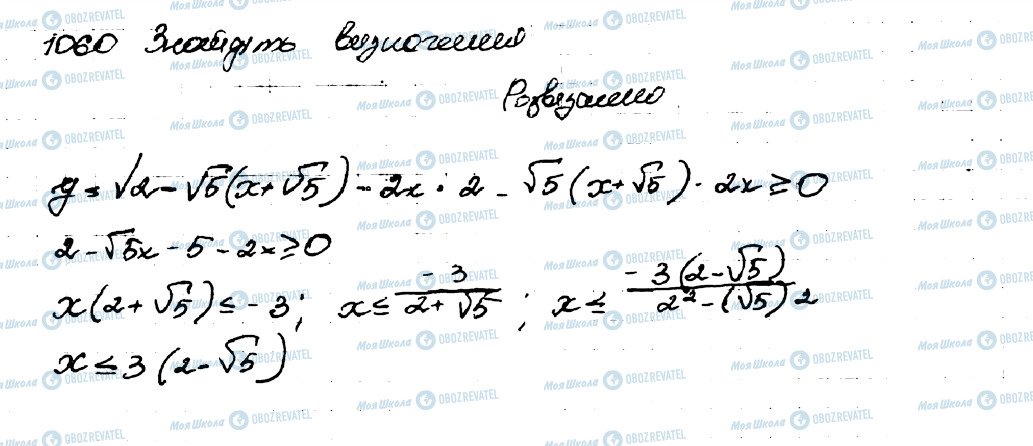 1060 Знайдіть визначення
Розвязання
y = √2 - √5(x + √5) - 2x · 2 - √5(x + √5) · 2x ≥ 0
2 - √5x - 5 - 2x ≥ 0
x(2 + √5) ≤ -3; x ≤ -3/(2 + √5); x ≤ -3(2 - √5)/(2² - (√5)2
x ≤ 3(2 - √5)